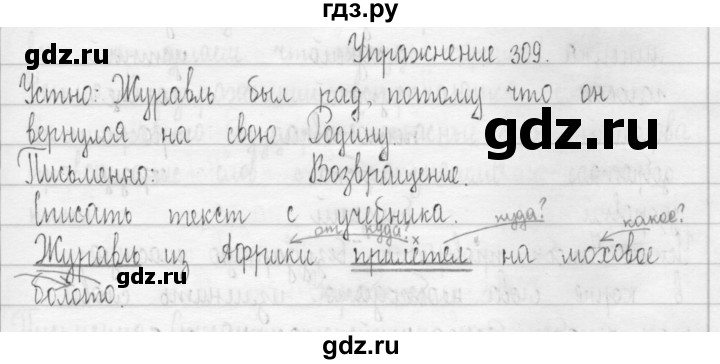 гдз.ру
Упражнение 309.
gdz.ru gdz.ru
Устно: Журавль был рад, потому что он
вернулся на свою Родину.
gdz.ru
Письменно: Возвращение.
вписать текст с учебника.
от куда? куда? какое?
Журавль из Африки прилетел на моховое
болото.
gdz.ru gdz.ru